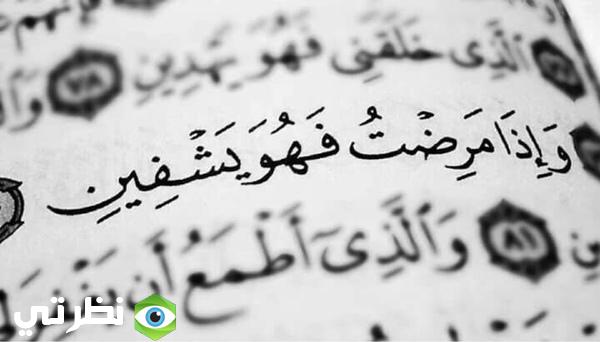 ٱلَّذِى خَلَقَنِى فَهُوَ يَهْدِينِ ٧٨
وَإِذَا مَرِضْتُ فَهُوَ يَشْفِينِ
ينِ ٨١ وَٱلَّذِىٓ أَطْمَعُ أَن يَغْفِرَ
نظرتي